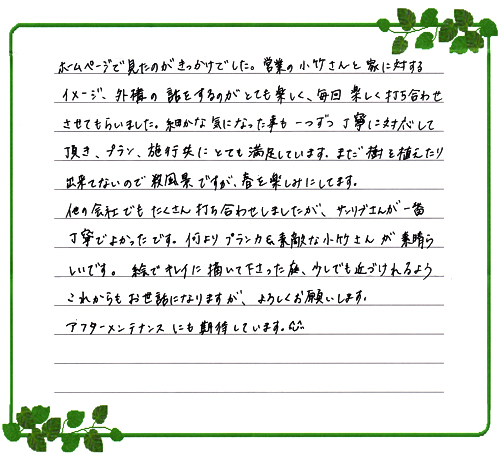 ホームページで見たのがきっかけでした。営業の小竹さんと家に対する
イメージ、外構の話をするのがとても楽しく、毎回楽しく打ち合わせ
させてもらいました。細かな気になった事も一つずつ丁寧に対応して
頂き、プラン、施行共にとても満足しています。まだ樹を植えたり
出来てないので殺風景ですが、春を楽しみにしてます。
他の会社でもたくさん打ち合わせしましたが、サンリブさんが一番
丁寧でよかったです。何よりプランクな素敵な小竹さんが素晴ら
しいです。絵でキレイに描いて下さった庭、少しでも近づけれるよう
これからもお世話になりますが、よろしくお願いします。
アフターメンテナンスにも期待しています。^^